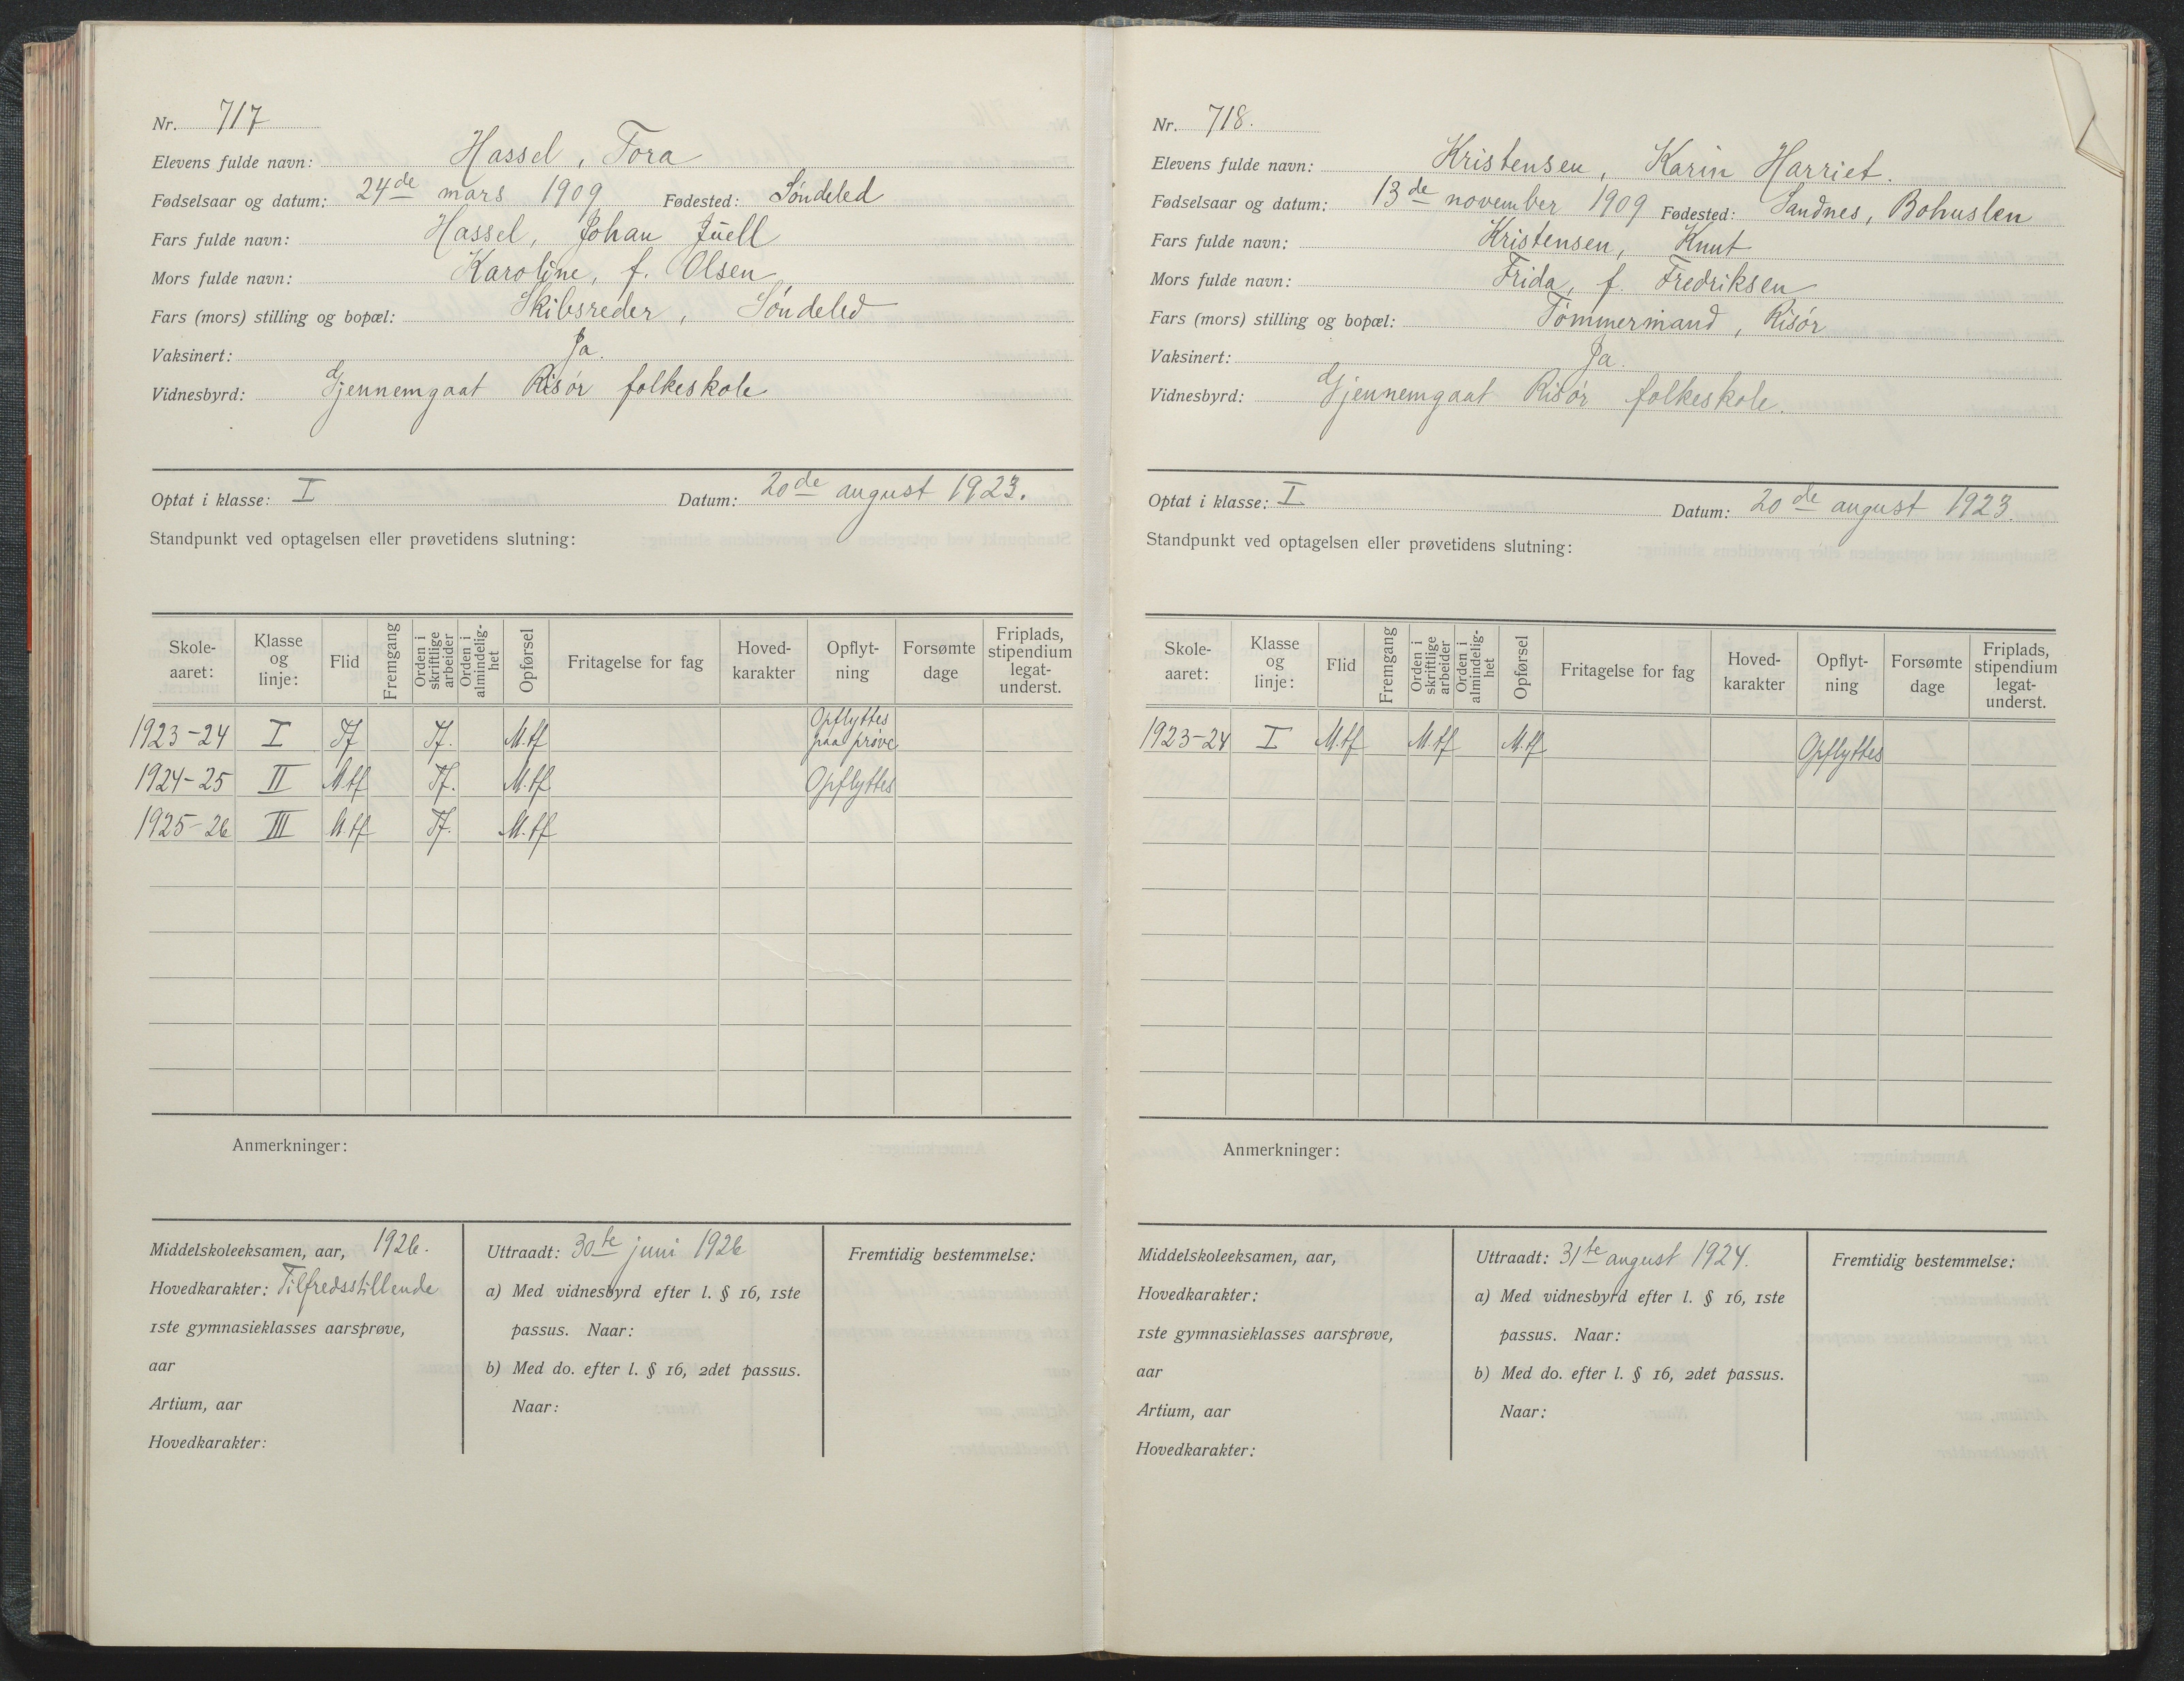 Nr. 717
Elevens fulde navn: Hassel, Tora
Fødselsaar og datum: 24de mars 1909 Fødested: Søndeled
Fars fulde navn: Hassel, Johan Juell
Mors fulde navn: Karoline, f. Olsen
Fars (mors) stilling og bopæl: Skibsreder, Søndeled
Vaksinert: Ja.
Vidnesbyrd: Gjennemgaat Risør folkeskole
Optat i klasse: I Datum: 20de august 1923.
Standpunkt ved optagelsen eller prøvetidens slutning:
Skole-aaret: Klasse og linje: Flid Fremgang Orden i skriftlige arbeider Orden i almindelig-het Opførsel Fritagelse for fag Hoved-karakter Opflyt-ning Forsømte dage Friplads, stipendium legat-underst.
1923-24 I Tf Tf. M.tf Opflyttes paa prøve
1924-25 II M.tf Tf. M.tf Opflyttes
1925-26 III M.tf Tf. M.tf
Anmerkninger:
Middelskoleeksamen, aar, 1926.
Hovedkarakter: Tilfredsstillende
1ste gymnasieklasses aarsprøve,
aar
Artium, aar
Hovedkarakter:
Uttraadt: 30te juni 1926
a) Med vidnesbyrd efter l. § 16, 1ste
passus. Naar:
b) Med do. efter l. § 16, 2det passus.
Naar:
Fremtidig bestemmelse:
Nr. 718.
Elevens fulde navn: Kristensen, Karin Harriet.
Fødselsaar og datum: 13de november 1909 Fødested: Sandnes, Bohuslen
Fars fulde navn: Kristensen, Knut
Mors fulde navn: Frida, f. Fredriksen
Fars (mors) stilling og bopæl: Tømmermand, Risør
Vaksinert: Ja.
Vidnesbyrd: Gjennemgaat Risør folkeskole.
Optat i klasse: I Datum: 20de august 1923.
Standpunkt ved optagelsen eller prøvetidens slutning:
Skole-aaret: Klasse og linje: Flid Fremgang Orden i skriftlige arbeider Orden i almindelig-het Opførsel Fritagelse for fag Hoved-karakter Opflyt-ning Forsømte dage Friplads, stipendium legat-underst.
1923-24 I M.tf M.tf M.tf Opflyttes
Anmerkninger:
Middelskoleeksamen, aar,
Hovedkarakter:
1ste gymnasieklasses aarsprøve,
aar
Artium, aar
Hovedkarakter:
Uttraadt: 31te august 1924.
a) Med vidnesbyrd efter l. § 16, 1ste
passus. Naar:
b) Med do. efter l. § 16, 2det passus.
Naar:
Fremtidig bestemmelse: